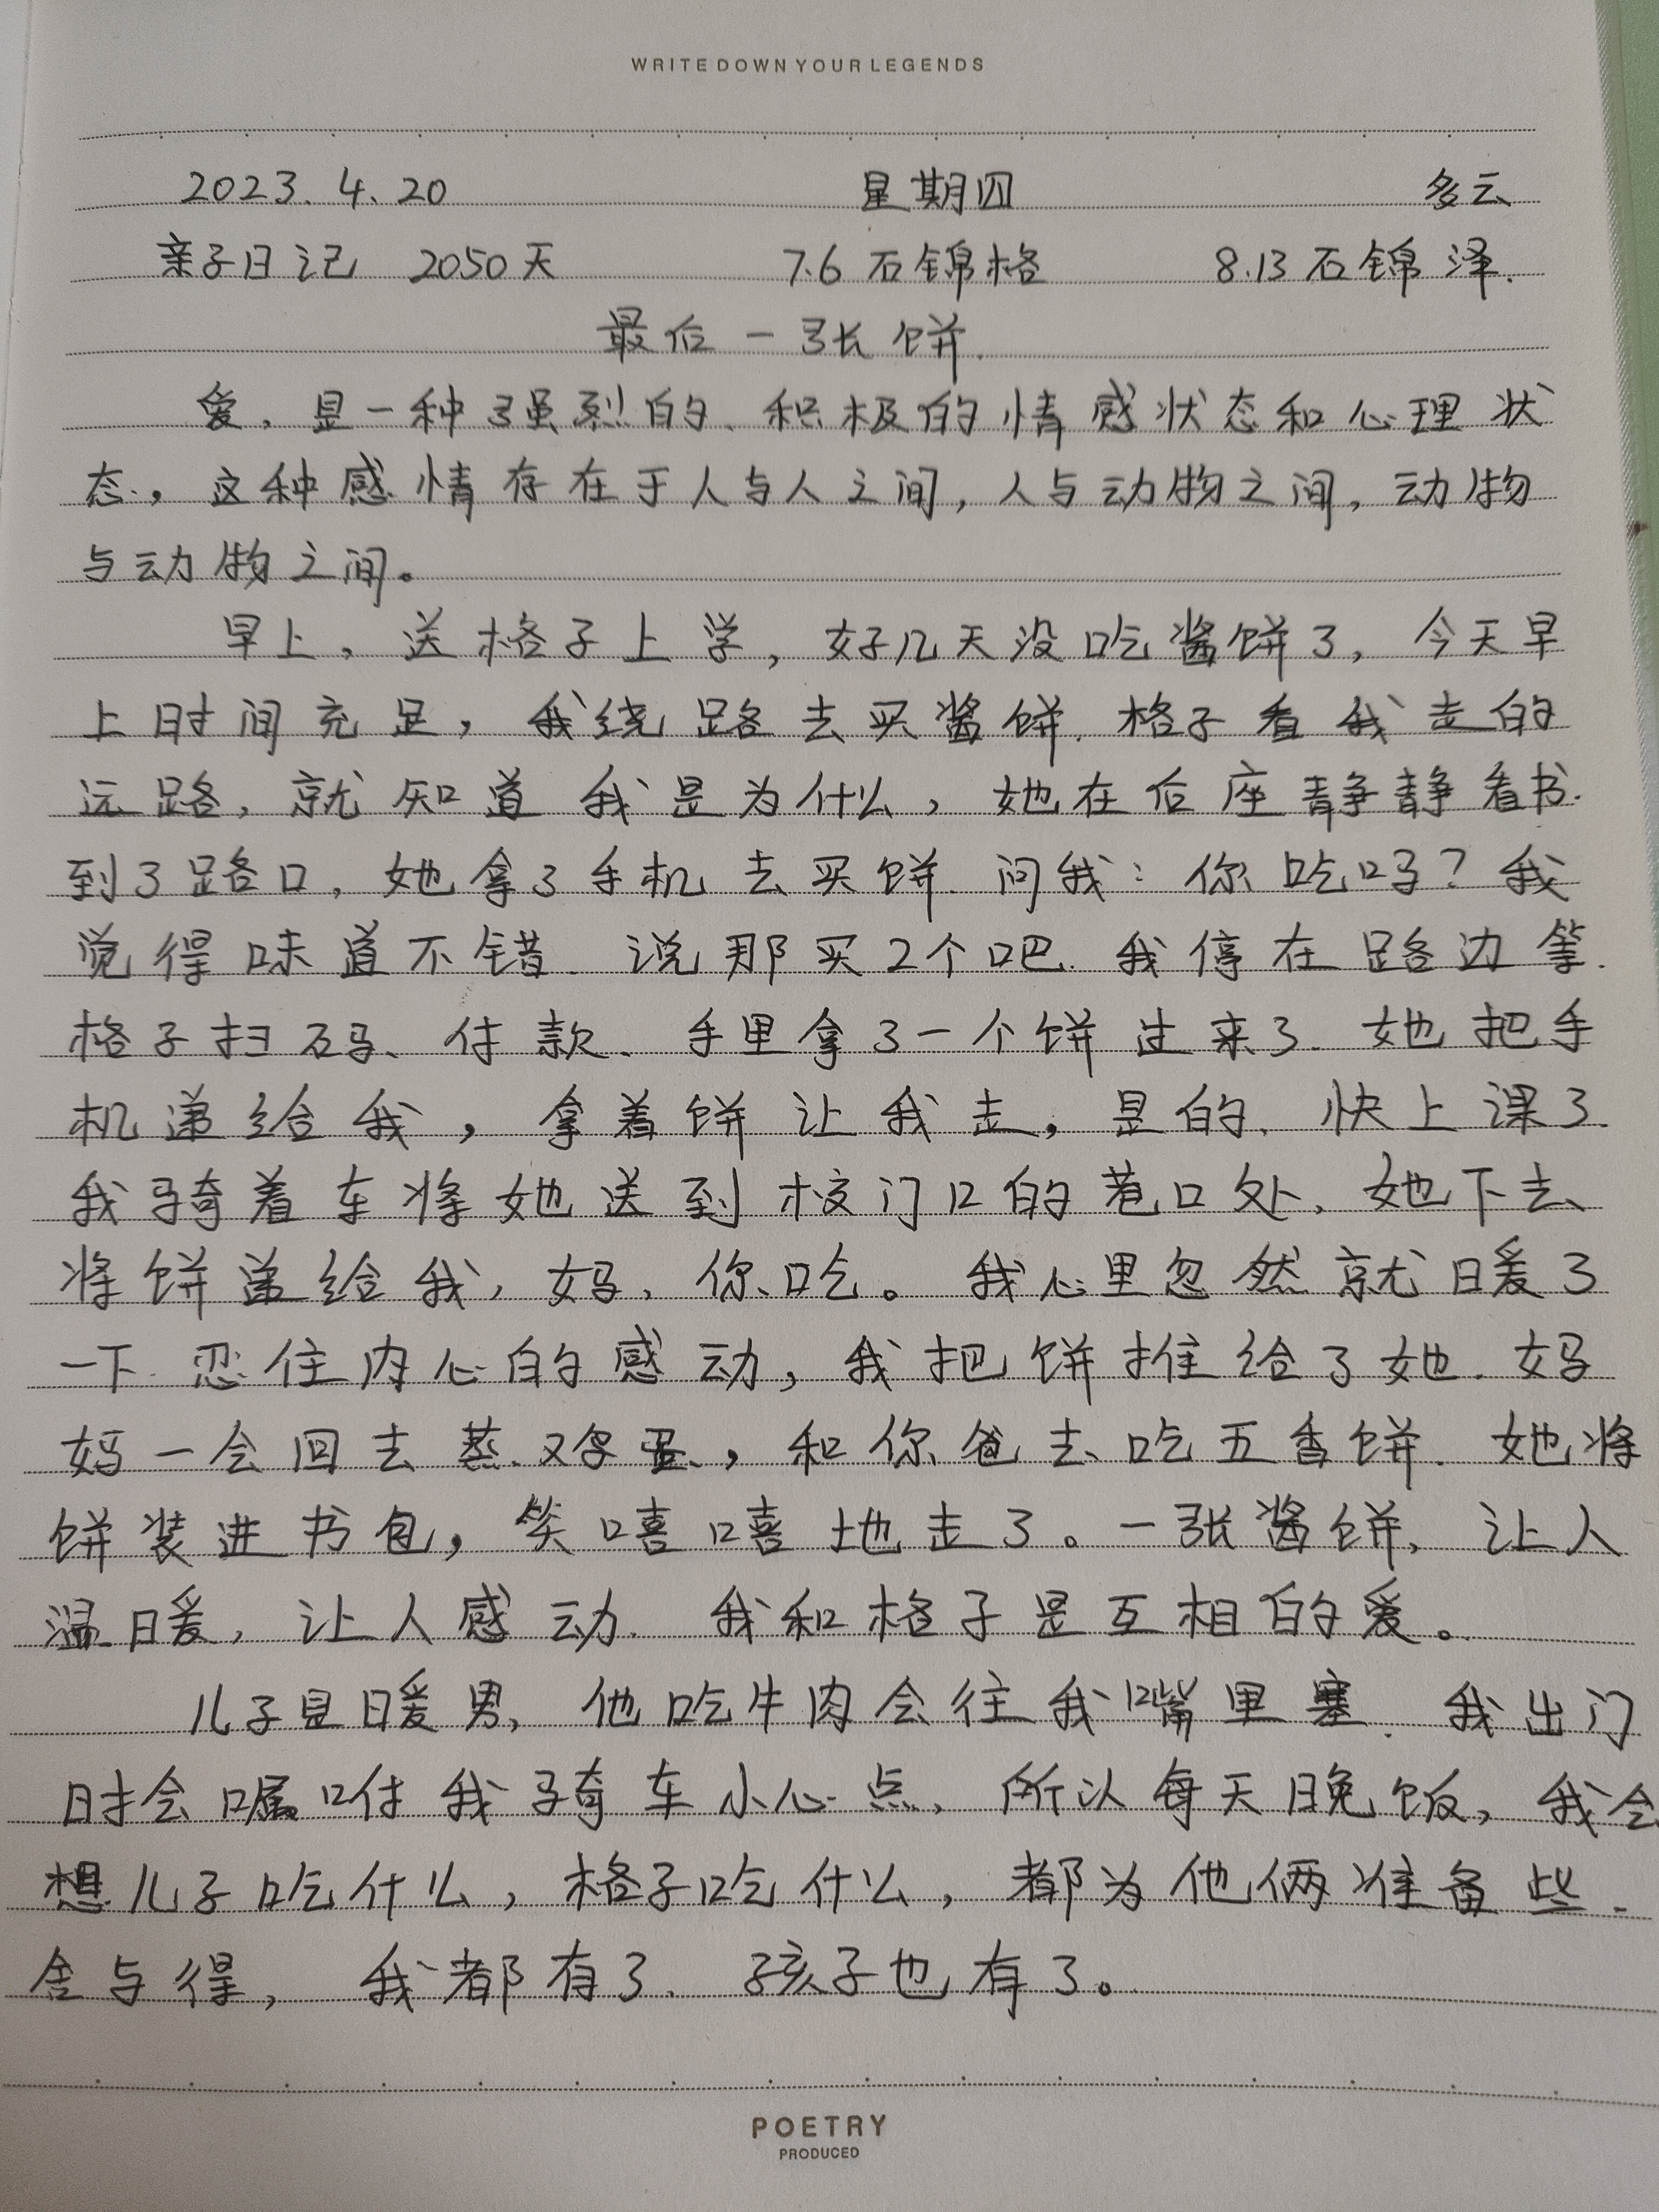 WRITE DOWN YOUR LEGENDS
2023.4.20 星期四 多云
亲子日记 2050天 7.6石锦格 8.13石锦泽.
最后一张饼.
爱,是一种强烈的、积极的情感状态和心理状
态,这种感情存在于人与人之间,人与动物之间,动物
与动物之间。
早上,送格子上学,好几天没吃酱饼了,今天早
上时间充足,我绕路去买酱饼.格子看我走的
远路,就知道我是为什么,她在后座静静看书.
到了路口,她拿了手机去买饼.问我:你吃吗?我
觉得味道不错.说那买2个吧.我停在路边等.
格子扫码、付款、手里拿了一个饼过来了.她把手
机递给我,拿着饼让我走,是的.快上课了.
我骑着车将她送到校门口的巷口处,她下去
将饼递给我,妈,你吃。我心里忽然就暖了
一下.忍住内心的感动,我把饼推给了她.妈
妈一会回去蒸鸡蛋,和你爸去吃五香饼.她将
饼装进书包,笑嘻嘻地走了。一张酱饼,让人
温暖,让人感动.我和格子是互相的爱。
儿子是暖男,他吃牛肉会往我嘴里塞.我出门
时会嘱咐我骑车小心点,所以每天晚饭,我会
想儿子吃什么,格子吃什么,都为他俩准备些.
舍与得,我都有了.孩子也有了。
POETRY
PRODUCED